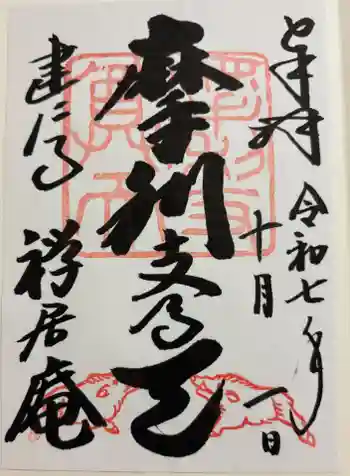 奉拝
令和七年
十月
日
摩利支尊天
建仁寺
禅居庵